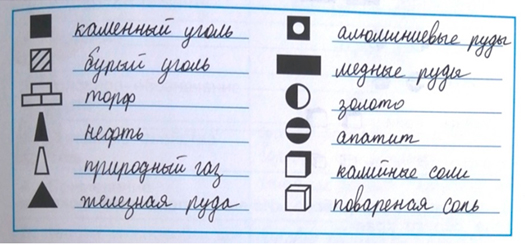 каменный уголь
бурый уголь
торф
нефть
природный газ
железная руда
алюминиевые руды
медные руды
золото
апатит
калийные соли
повареная соль